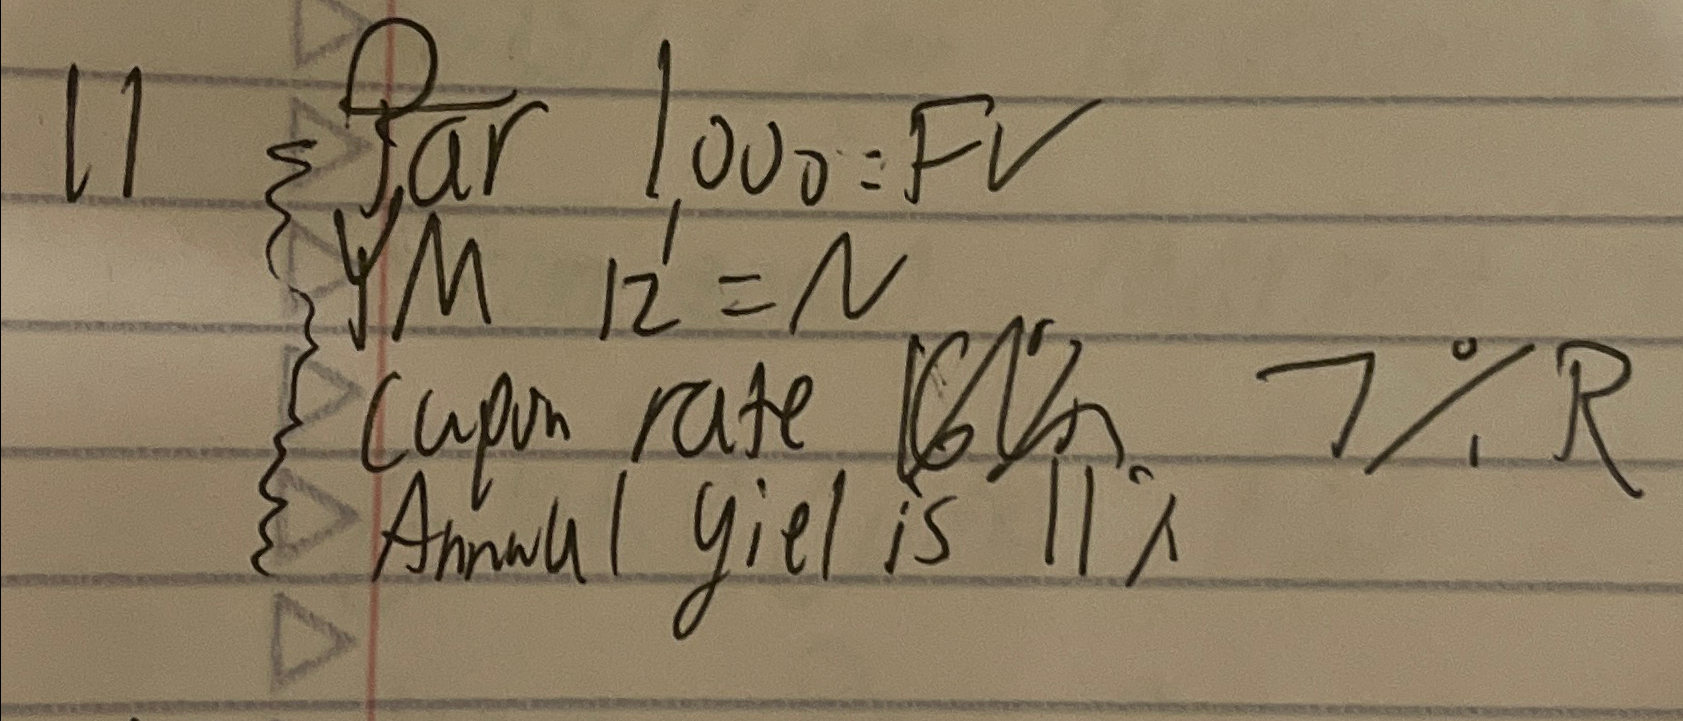 11 Par 1000 = FV
YM 12 = N
Cupon rate 7% R
Annual yiel is 11%